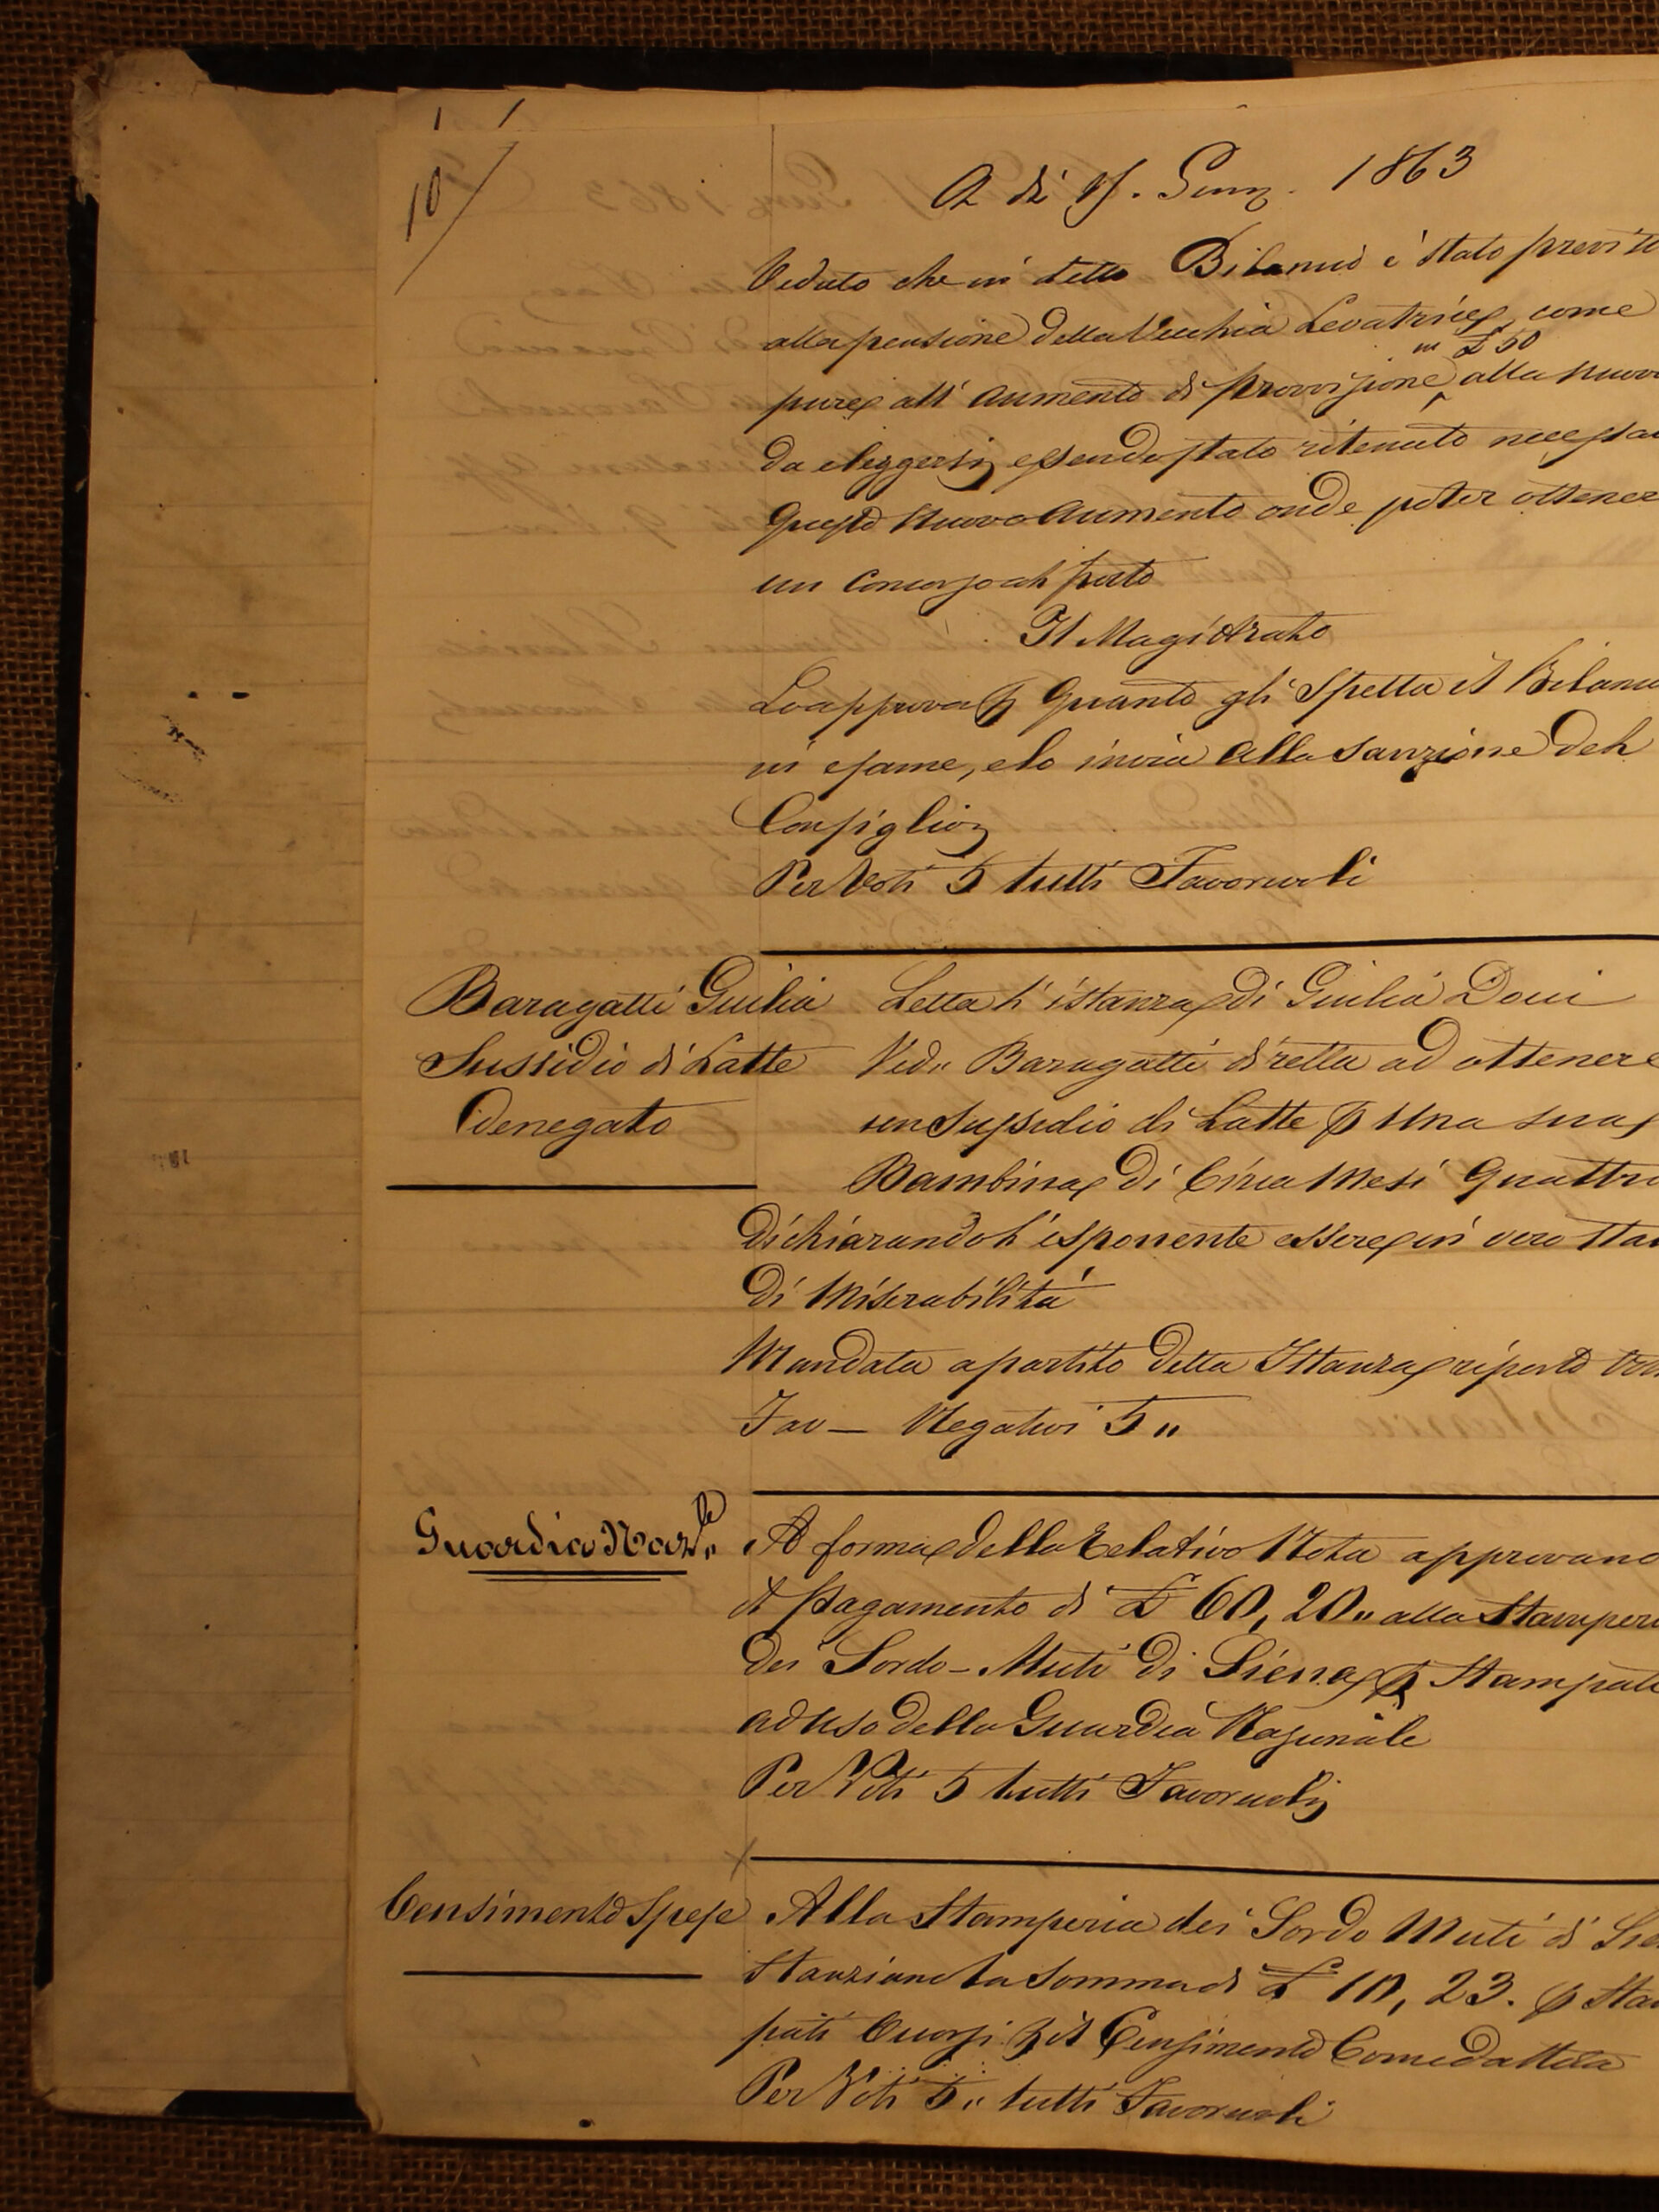 10
A dì 15. Genn. 1863
Veduto che in detto Bilancio è stato previsto
alla pensione della Vecchia Levatrice, come
in £ 50
pure all' aumento di provvisione alla nuova
da eleggersi essendo stato ritenuto
questo nuovo aumento onde poter ottener
un Concorso al posto
Il Magistrato
Lo approva p quanto gli Spetta il
in esame, e lo invia alla Sanzione del
Consiglio
Per Voti 5 tutti Favorevoli
Baragatti Giulia
Sussidio di Latte
denegato
Letta l' istanza di Giulia
Ved.a Baragatti diretta ad ottenere
un Sussidio di Latte p Una sua
Bambina di Circa Mesi Quattro
Dichiarando l' esponente essere in vero
di Miserabilità
Mandata a partito detta Istanza riportò
Fav — Negativi 5 "
Guardia Naz.le
A forma della Relativa Nota approvano
il Pagamento di £ 60, 20 " alla
dei Sordo-Muti di Siena p Stampati
ad uso della Guardia Nazionale
Per Voti 5 tutti Favorevoli
Censimento Spese
Alla Stamperia dei Sordo Muti di
Stanziano la Somma di £ 10, 23. p
pati p il Censimento Come
Per Voti 5 " tutti Favorevoli